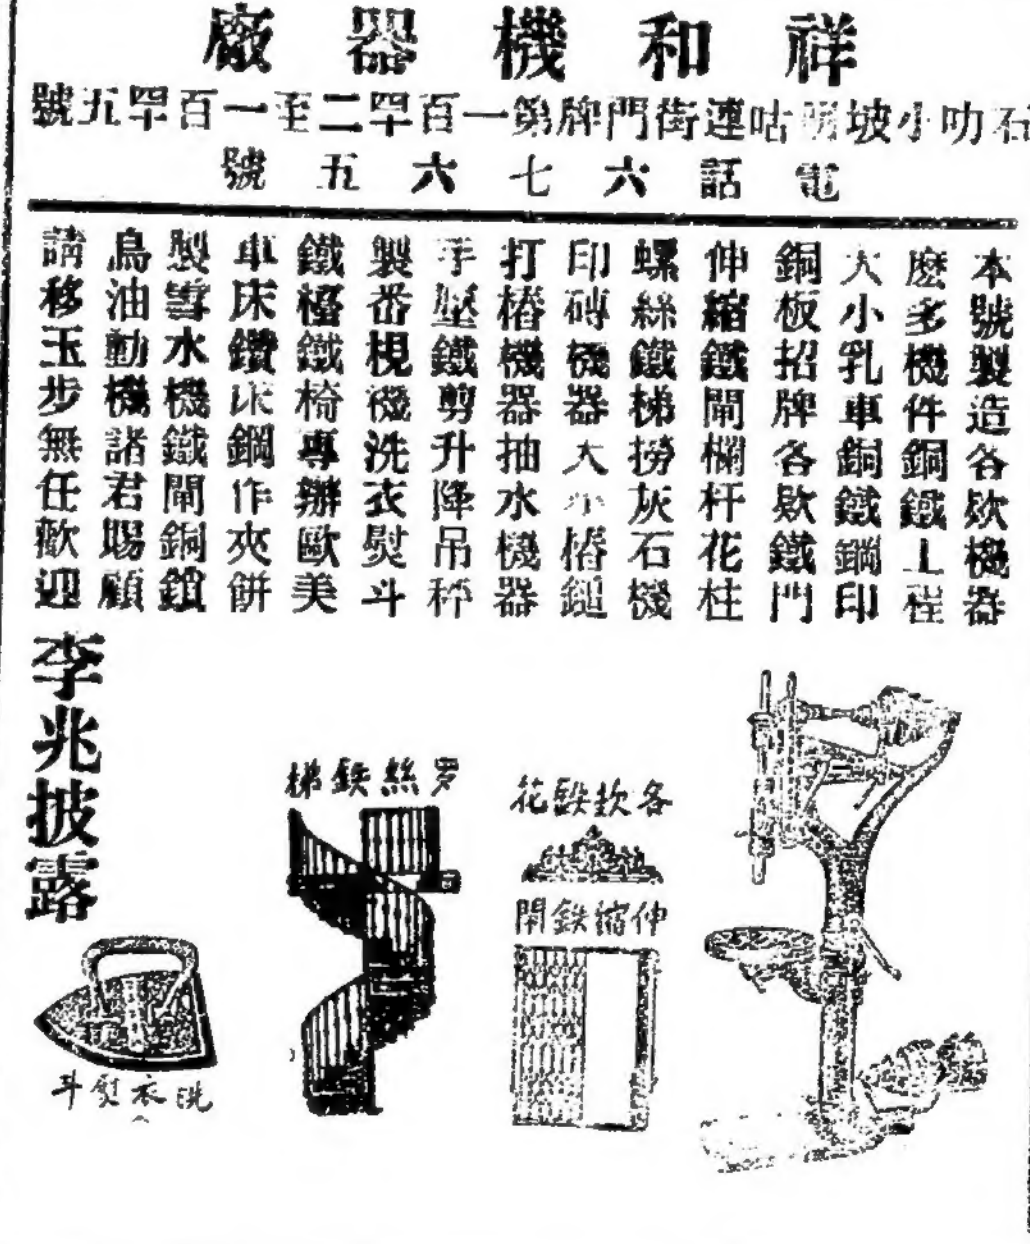 祥和機器廠
石叻小坡明咕連街門牌第一百四十二至一百四十五號
電話六七六五號
本號製造各欵機器
麽多機件銅鐵工程
大小乳車銅鐵鋼印
銅板招牌各欵鐵門
伸縮鐵閘欄杆花柱
螺絲鐵梯撈灰石機
印磚機器大小樁鎚
打樁機器抽水機器
手壓鐵剪升降吊秤
製番梘機洗衣熨斗
鐵檯鐵椅專辦歐美
車床鑽床鋼作夾餅
製雪水機鐵閘銅鎖
烏油動機諸君賜顧
請移玉步無任歡迎
李兆披露
各欵花
伸縮鉄閘
罗絲鉄梯
洗衣熨斗